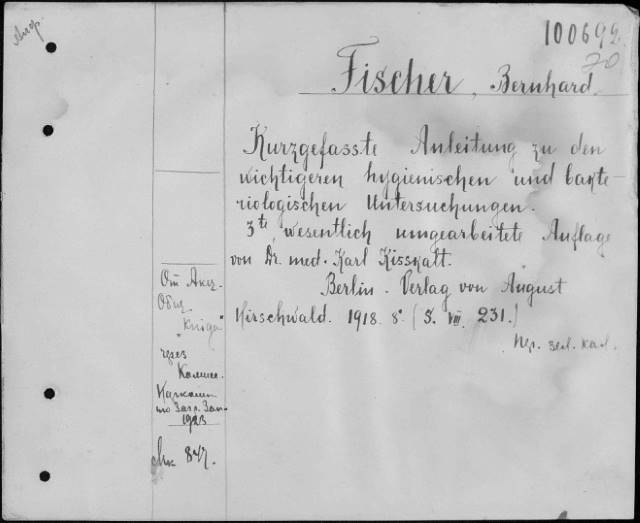 100692
20
Fischer, Bernhard.
Kurzgefasste Anleitung zu den
wichtigeren hygienischen und bakte-
riologischen Untersuchungen.
3te, wesentlich umgearbeitete Auflage
von Dr. med. Karl Kisskalt.
Berlin. Verlag von August
Hirschwald. 1918. 8°. (S. VIII. 231.)
От Акц.
Общ.
"Книга"
через
Комис.
по Загр. Зак
1923
847.